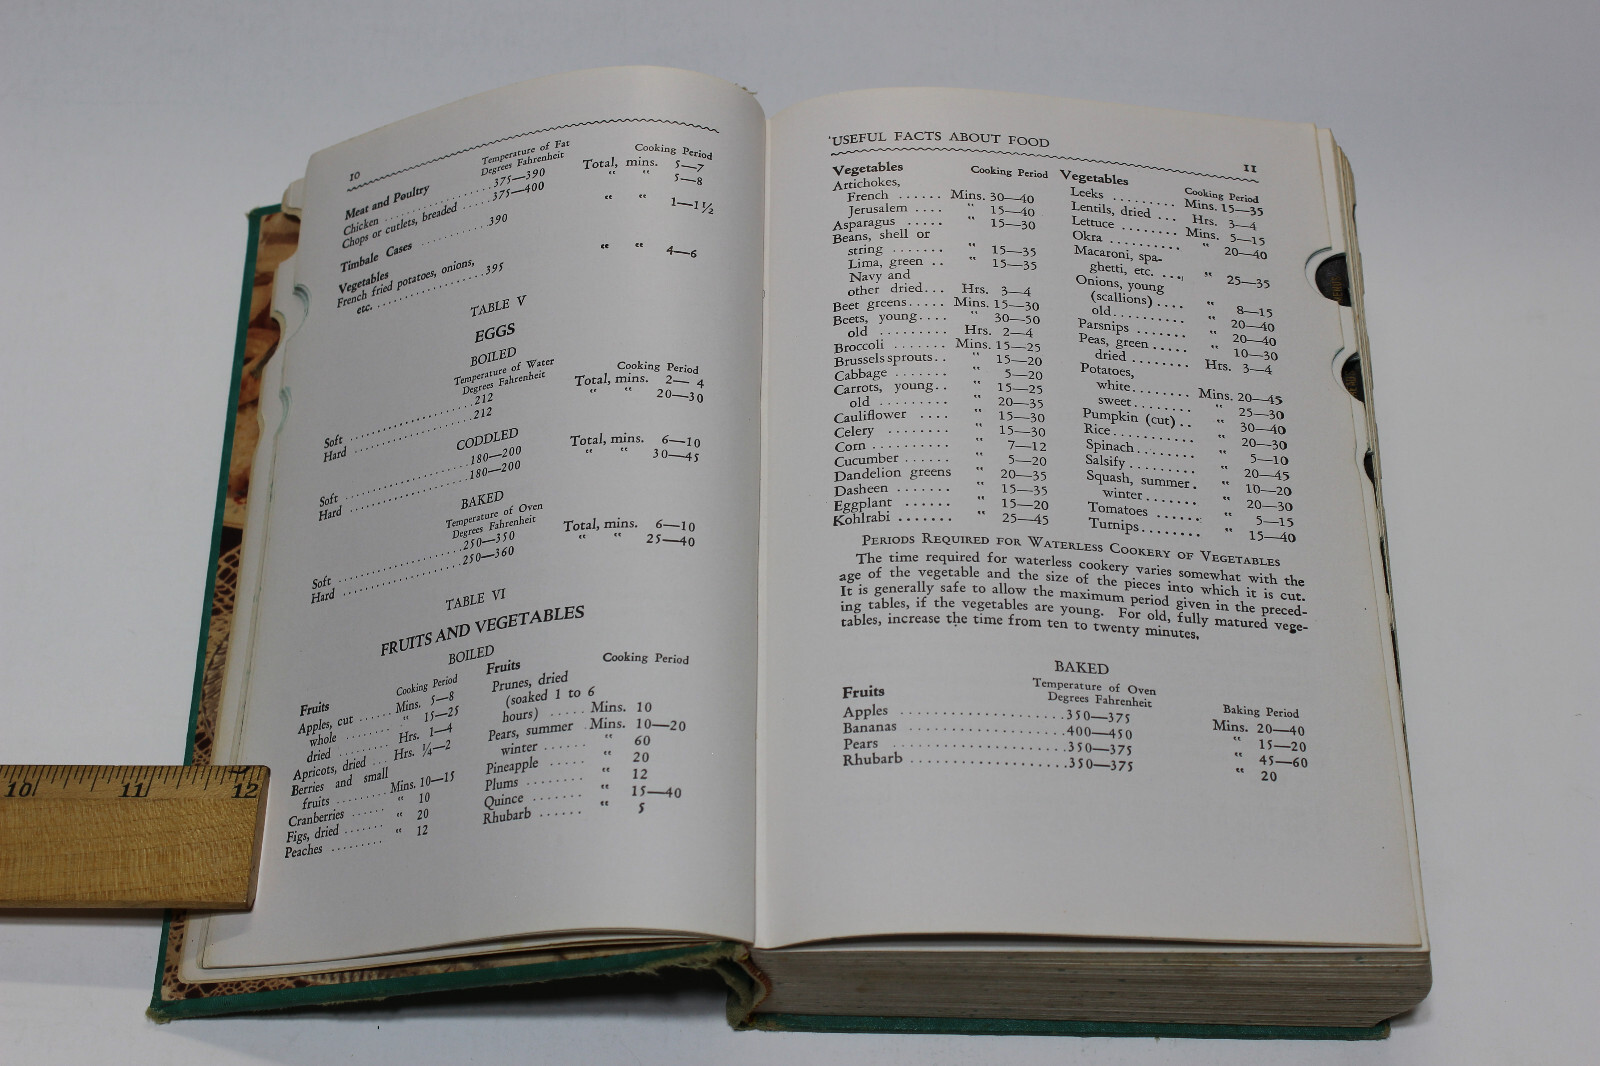 10
Temperature of Fat
Degrees Fahrenheit
Cooking Period
Meat and Poultry
Chicken ......................375—390 Total, mins. 5—7
Chops or cutlets, breaded .....375—400 " " 5—8
Timbale Cases ............390 " " 1—1½
Vegetables
French fried potatoes, onions,
etc. ......................395 " " 4—6
TABLE V
EGGS
BOILED
Temperature of Water
Degrees Fahrenheit
Cooking Period
Soft ........................212 Total, mins. 2— 4
Hard ........................212 " " 20—30
CODDLED
Soft ........................180—200 Total, mins. 6—10
Hard ........................180—200 " " 30—45
BAKED
Temperature of Oven
Degrees Fahrenheit
Soft ........................250—350 Total, mins. 6—10
Hard ........................250—360 " " 25—40
TABLE VI
FRUITS AND VEGETABLES
BOILED
Fruits Cooking Period
Apples, cut ...... Mins. 5—8
whole ........ " 15—25
dried ......... Hrs. 1—4
Apricots, dried ... Hrs. ¼—2
Berries and small
fruits ......... Mins. 10—15
Cranberries ...... " 10
Figs, dried ....... " 20
Peaches ......... " 12
Fruits Cooking Period
Prunes, dried
(soaked 1 to 6
hours) ..... Mins. 10
Pears, summer . Mins. 10—20
winter ...... " 60
Pineapple ..... " 20
Plums ........ " 12
Quince ....... " 15—40
Rhubarb ...... " 5
USEFUL FACTS ABOUT FOOD
11
Vegetables Cooking Period
Artichokes,
French ...... Mins. 30—40
Jerusalem .... " 15—40
Asparagus ..... " 15—30
Beans, shell or
string ....... " 15—35
Lima, green .. " 15—35
Navy and
other dried... Hrs. 3—4
Beet greens..... Mins. 15—30
Beets, young.... " 30—50
old ......... Hrs. 2—4
Broccoli ....... Mins. 15—25
Brussels sprouts.. " 15—20
Cabbage ....... " 5—20
Carrots, young.. " 15—25
old ......... " 20—35
Cauliflower .... " 15—30
Celery ........ " 15—30
Corn .......... " 7—12
Cucumber ...... " 5—20
Dandelion greens " 20—35
Dasheen ....... " 15—35
Eggplant ...... " 15—20
Kohlrabi ....... " 25—45
Vegetables Cooking Period
Leeks ......... Mins. 15—35
Lentils, dried ... Hrs. 3—4
Lettuce ........ Mins. 5—15
Okra .......... " 20—40
Macaroni, spa-
ghetti, etc. .... " 25—35
Onions, young
(scallions) .... " 8—15
old.......... " 20—40
Parsnips ....... " 20—40
Peas, green ..... " 10—30
dried ........ Hrs. 3—4
Potatoes,
white........ Mins. 20—45
sweet........ " 25—30
Pumpkin (cut) .. " 30—40
Rice........... " 20—30
Spinach........ " 5—10
Salsify......... " 20—45
Squash, summer. " 10—20
winter....... " 20—30
Tomatoes ...... " 5—15
Turnips........ " 15—40
PERIODS REQUIRED FOR WATERLESS COOKERY OF VEGETABLES
The time required for waterless cookery varies somewhat with the
age of the vegetable and the size of the pieces into which it is cut.
It is generally safe to allow the maximum period given in the preced-
ing tables, if the vegetables are young. For old, fully matured vege-
tables, increase the time from ten to twenty minutes.
BAKED
Temperature of Oven
Degrees Fahrenheit
Fruits Baking Period
Apples ....................350—375 Mins. 20—40
Bananas ...................400—450 " 15—20
Pears .....................350—375 " 45—60
Rhubarb ...................350—375 " 20
10 11 12